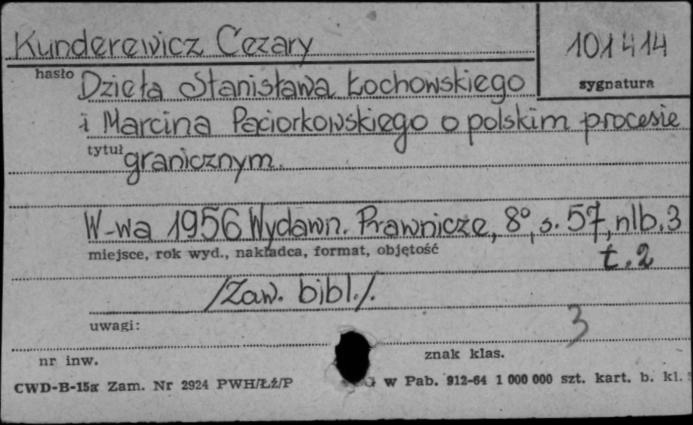 Kunderewicz Cezary
101414
hasło
sygnatura
Dzieła Stanisława Łochowskiego
i Marcina Paciorkowskiego o polskim procesie
tytuł
granicznym.
W-wa 1956 Wydawn. Prawnicze, 8°, s. 57, nlb. 3
miejsce, rok wyd., nakładca, format, objętość
t. 2
/Zaw. bibl./.
uwagi:
3
nr inw.
znak klas.
CWD-B-15a Zam. Nr 2924 PWH/Łź/P
G w Pab. 912-64 1 000 000 szt. kart. b. kl.